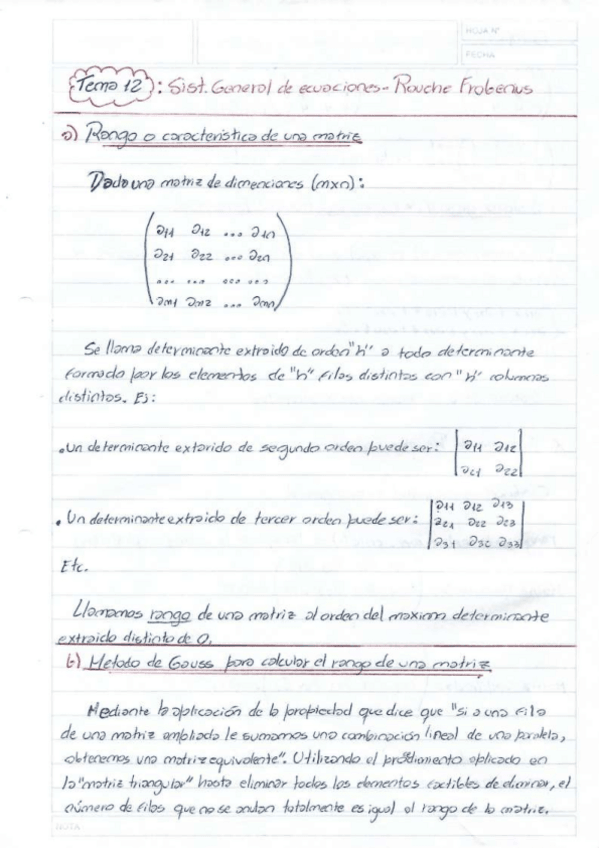 HOJA Nº
FECHA
Tema 12: Sist. General de ecuaciones - Rouche Frobenius
a) Rango o caracteristica de una matriz
Dada una matriz de dimenciones (mxn):
a11 a12 ... a1n
a21 a22 ... a2n
... ... ... ...
am1 am2 ... amn
Se llama determinante extraido de orden "h" a todo determinante
formado por los elementos de "h" filas distintas con "h" columnas
distintas. Ej:
• Un determinante extarido de segundo orden puede ser: | a11 a12 |
| a21 a22 |
• Un determinante extraido de tercer orden puede ser: | a11 a12 a13 |
| a21 a22 a23 |
| a31 a32 a33 |
Etc.
Llamamos rango de una matriz al orden del maximo determinante
extraido distinto de 0.
b) Metodo de Gauss para calcular el rango de una matriz
Mediante la aplicación de la propiedad que dice que "si a una fila
de una matriz ampliada le sumamos una combinación lineal de una paralela,
obtenemos una matriz equivalente". Utilizando el prodimiento aplicado en
la "matriz triangular" hasta eliminar todos los elementos factibles de eliminar, el
número de filas que no se anulan totalmente es igual al rango de la matriz.
NOTA